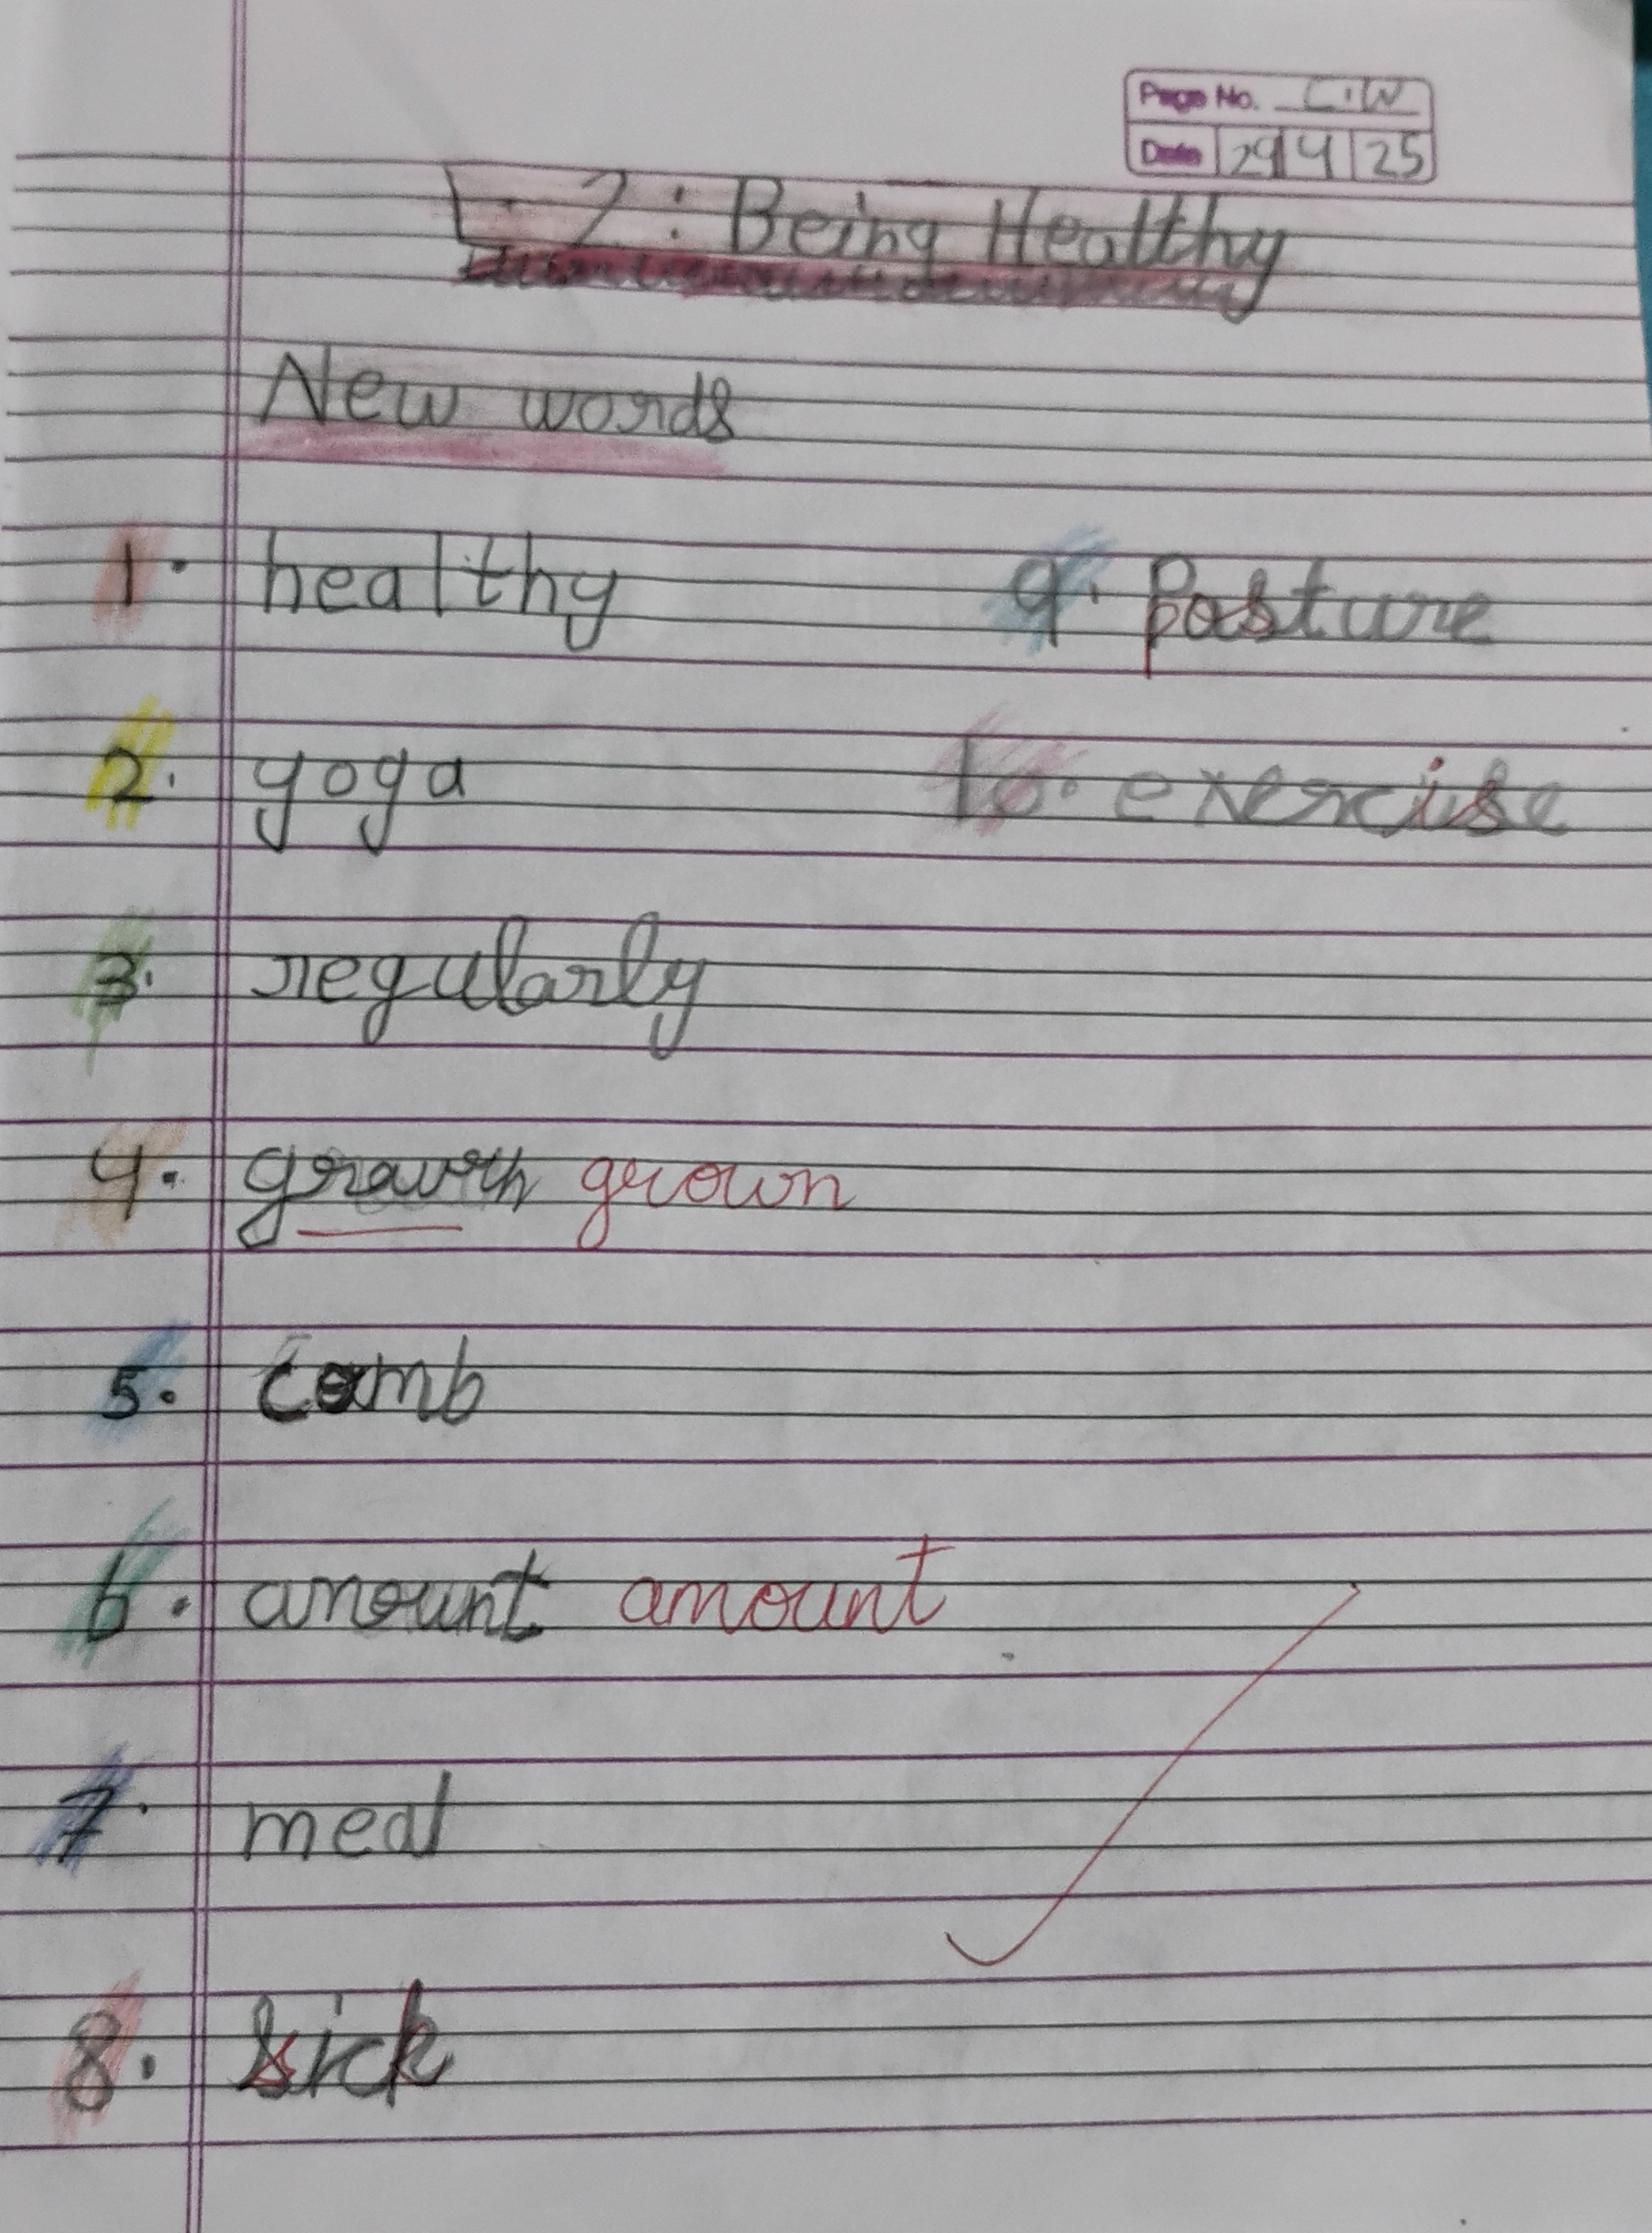 Page No. C.W
Date 29 4 25
L-2: Being Healthy
New words
1. healthy
2. yoga
3. regularly
4. grown
5. comb
6. amount amount
7. meal
8. sick
9. Posture
10. exercise